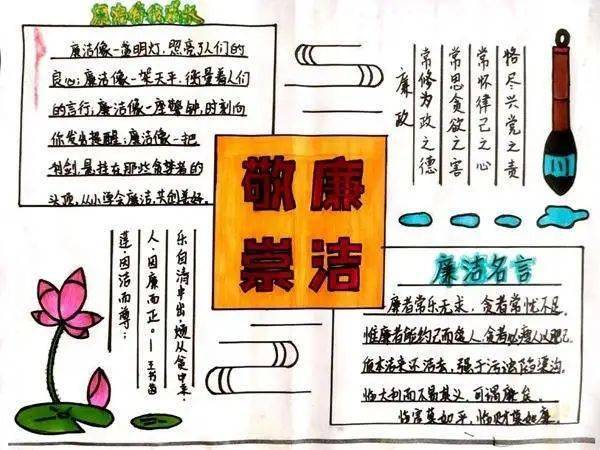 廉洁伴我成长
廉洁像一盏明灯,照亮了人们的
良心;廉洁像一架天平,衡量着人们
的言行;廉洁像一座警钟,时刻向
你发出提醒;廉洁像一把
利剑,悬挂在那些贪婪者的
头顶,从小学会廉洁,共创美好。
恪尽兴党之责
常怀律己之心
常思贪欲之害
常修为政之德
廉政
敬廉
崇洁
乐自清中出,烦从贪中来.
人,因廉而正。—王书
莲,因洁而尊;
廉洁名言
廉者常乐无求,贪者常忧不足。
惟廉者能约己而爱人,贪者必瘦人以肥己。
质本洁来还洁去,强于污浊陷渠沟。
临大利而不易其义,可谓廉矣。
临官莫如平,临财莫如廉。